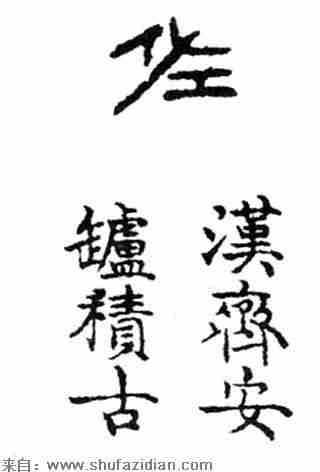 漢齊安
鑪積古
来自：www.shufazidian.com